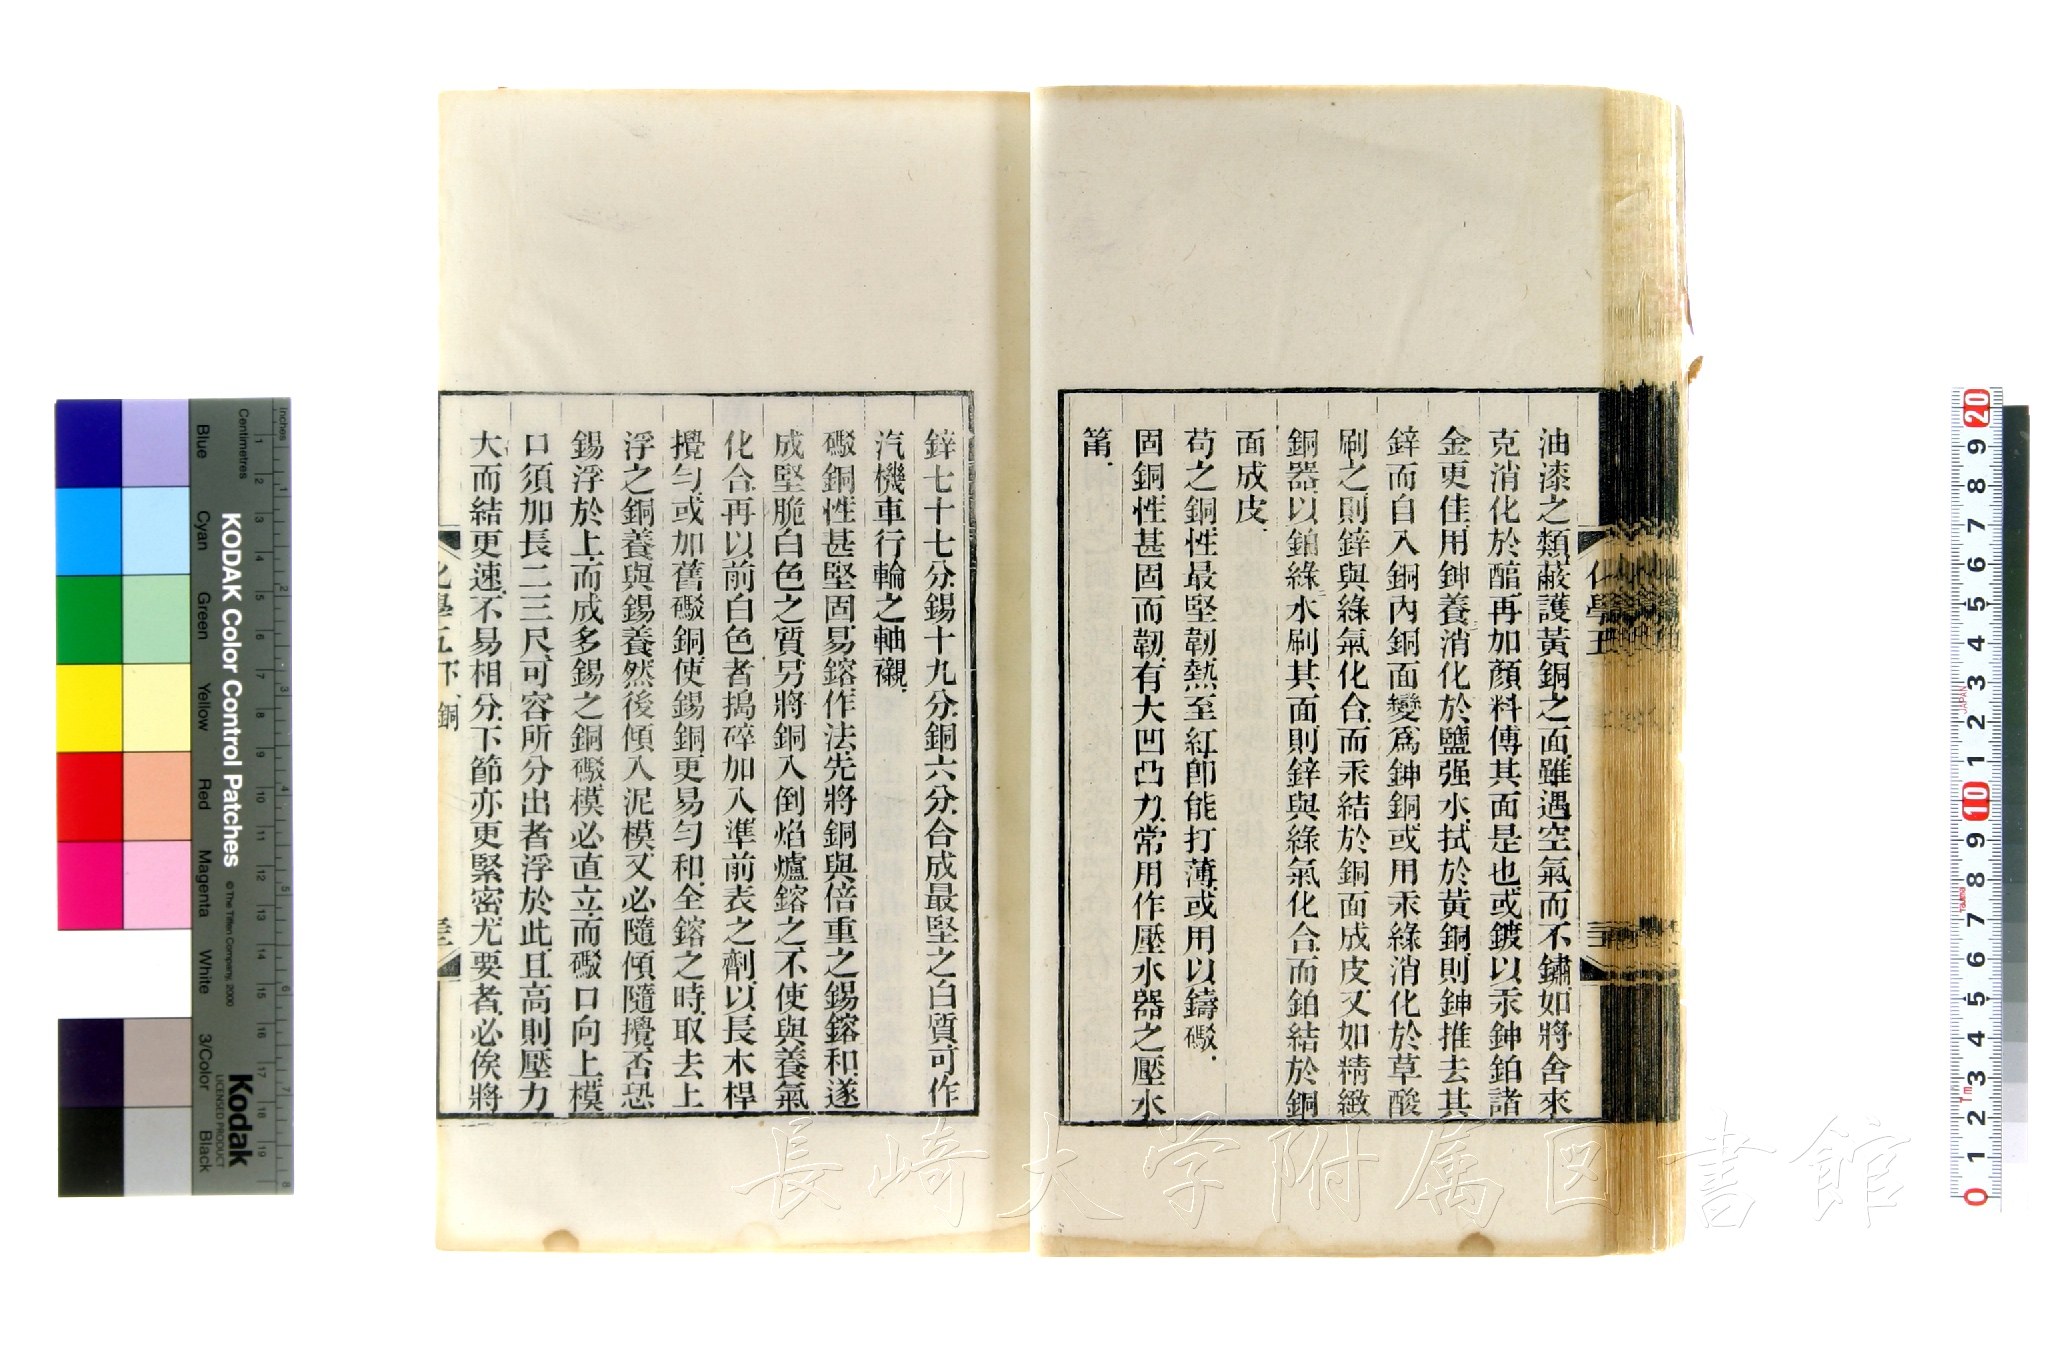 油漆之類蔽護黃銅之面雖遇空氣而不鏽如將舍來
克消化於醕再加顏料傅其面是也或鍍以汞鉮鉑諸
金更佳用鉮養消化於鹽强水拭於黃銅則鉮推去其
鋅而自入銅內銅面變爲鉮銅或用汞綠消化於草酸
刷之則鋅與綠氣化合而汞結於銅面成皮又如精緻
銅器以鉑綠水刷其面則鋅與綠氣化合而鉑結於銅
面成皮
苟之銅性最堅韌熱至紅卽能打薄或用以鑄礮
固銅性甚固而韌有大凹凸力常用作壓水器之壓水
筩
鋅七十七分錫十九分銅六分合成最堅之白質可作
汽機車行輪之軸襯
礮銅性甚堅固易鎔作法先將銅與倍重之錫鎔和遂
成堅脆白色之質另將銅入倒焰爐鎔之不使與養氣
化合再以前白色者搗碎加入準前表之劑以長木桿
攪勻或加舊礮銅使錫銅更易勻和全鎔之時取去上
浮之銅養與錫養然後傾入泥模又必隨傾隨攪否恐
錫浮於上而成多錫之銅礮模必直立而礮口向上模
口須加長二三尺可容所分出者浮於此且高則壓力
大而結更速不易相分下節亦更緊密尤要者必俟將
化學五下 銅
長崎大学附属図書館
KODAK Color Control Patches
© The Tiffen Company, 2000
Kodak
LICENSED PRODUCT
Blue
Cyan
Green
Yellow
Red
Magenta
White
3/Color
Black
Centimetres
Inches